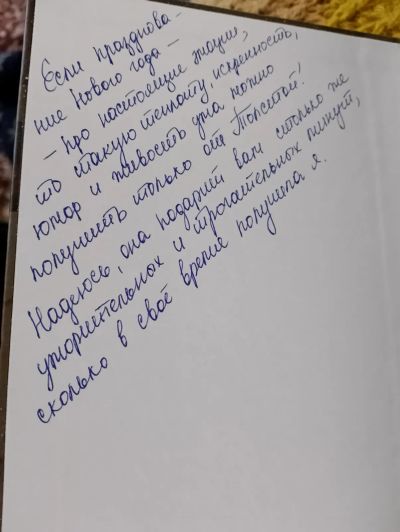 Если празднова-
ние Нового года —
— про настоящие эмоции,
то такую теплоту, искренность,
юмор и живость ума можно
получить только от Толстой!
Надеюсь, она подарит вам столько же
уморительных и трогательных минут,
сколько в своё время получила я.